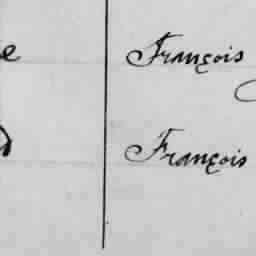 e François
François